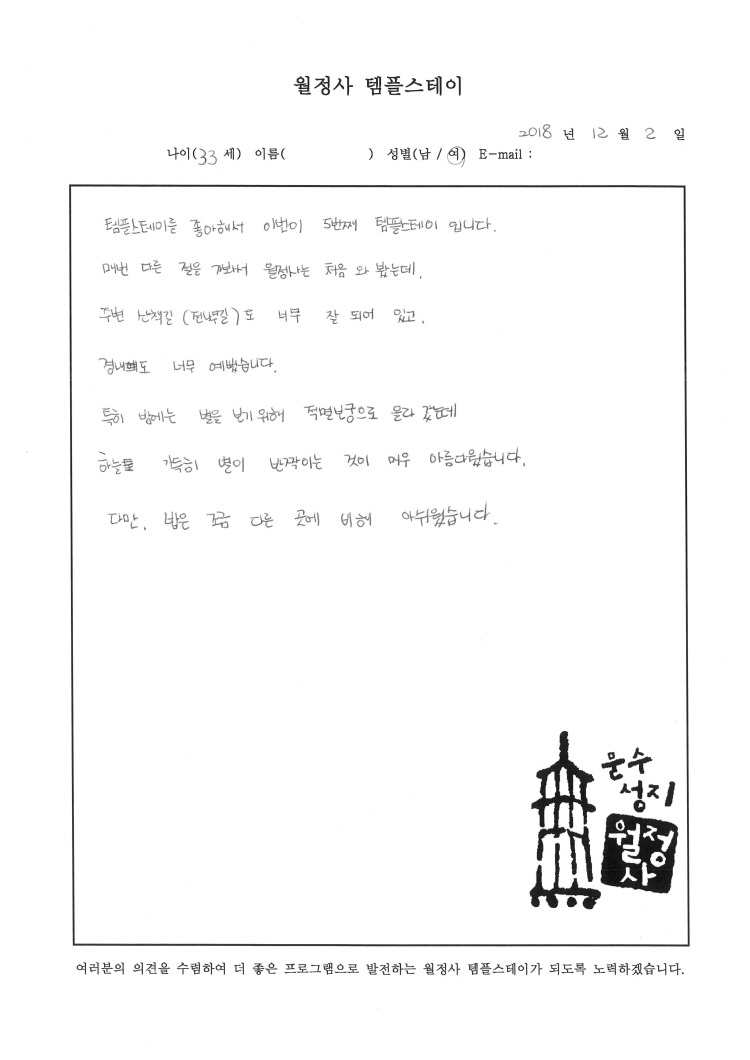 월정사 템플스테이
2018 년 12 월 2 일
나이(33 세) 이름( ) 성별(남 / 여) E-mail :
템플스테이를 좋아해서 이번이 5번째 템플스테이 입니다.
매번 다른 절을 가봐서 월정사는 처음 와 봤는데,
주변 산책길 (전나무길)도 너무 잘 되어 있고,
경내도 너무 예뻤습니다.
특히 밤에는 별을 보기 위해 적멸보궁으로 올라 갔는데
하늘 가득히 별이 반짝이는 것이 매우 아름다웠습니다.
다만, 밥은 조금 다른 곳에 비해 아쉬웠습니다.
문수
성지
월정
사
여러분의 의견을 수렴하여 더 좋은 프로그램으로 발전하는 월정사 템플스테이가 되도록 노력하겠습니다.